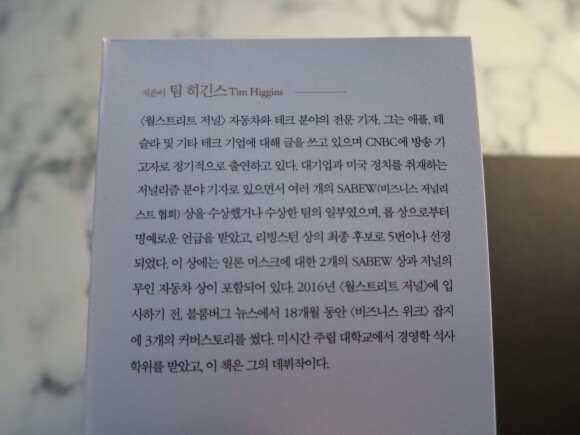 지은이 팀 히긴스 Tim Higgins
〈월스트리트 저널〉 자동차와 테크 분야의 전문 기자. 그는 애플, 테
슬라 및 기타 테크 기업에 대해 글을 쓰고 있으며 CNBC에 방송 기
고자로 정기적으로 출연하고 있다. 대기업과 미국 정치를 취재하는
저널리즘 분야 기자로 있으면서 여러 개의 SABEW(비즈니스 저널리
스트 협회) 상을 수상했거나 수상한 팀의 일부였으며, 롭 상으로부터
명예로운 언급을 받았고, 리빙스턴 상의 최종 후보로 5번이나 선정
되었다. 이 상에는 일론 머스크에 대한 2개의 SABEW 상과 저널의
무인 자동차 상이 포함되어 있다. 2016년 〈월스트리트 저널〉에 입
사하기 전, 블룸버그 뉴스에서 18개월 동안 〈비즈니스 위크〉 잡지
에 3개의 커버스토리를 썼다. 미시간 주립 대학교에서 경영학 석사
학위를 받았고, 이 책은 그의 데뷔작이다.